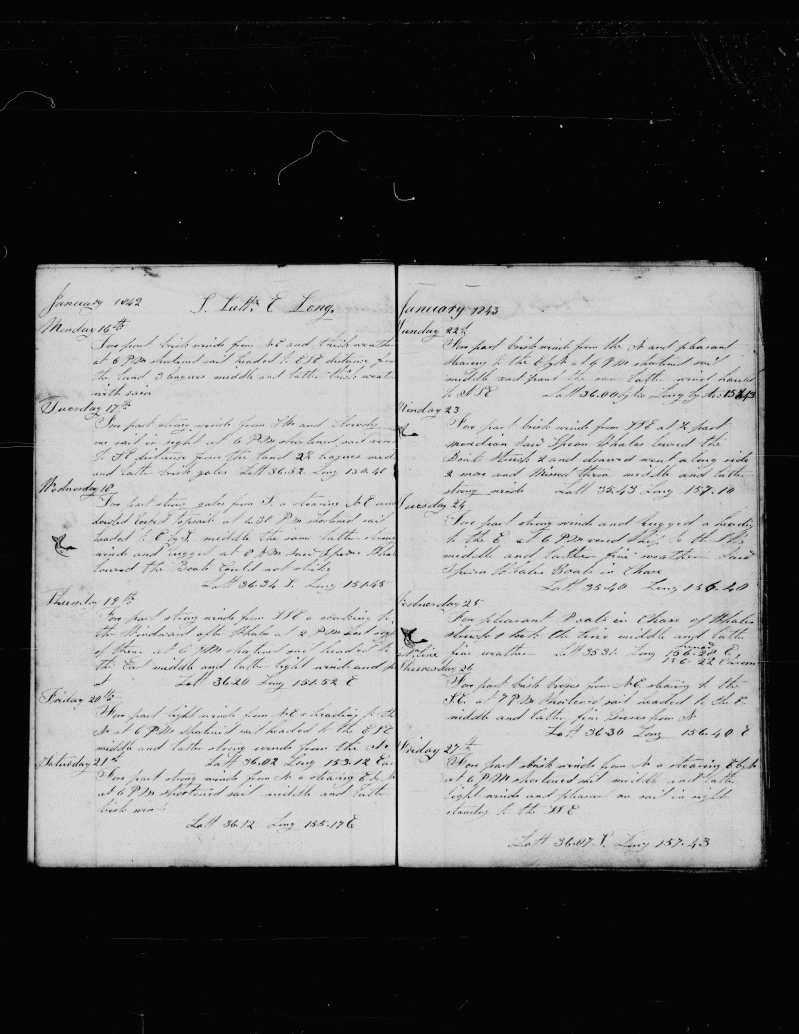 January 1842 S. Latt. E Long.
Monday 16th
Fore part brisk winds from NE and thick weath
at 6 PM shortened sail headed to ESE distance from
the land 3 leagues middle and latter thick weat
with rain
Tuesday 17th
Fore part strong winds from and
one sail in sight at 6 PM shortened sail
to SE distance from the land 2½ leagues mid
and latter brisk gales Latt 36.52 Long 150.40
Wednesday 18
Fore part strong gales from S. o stearing NE and
doubl reefed topsails at 4.30 PM shortened sail
headed to E by S. middle the same latter strong
winds and rugged at 8 AM saw Sperm Whal
lowered the Boats could not strike
Latt 36.34 S. Long 151.45
Thursday 19th
Fore part strong winds from SSE o working to
the Windward after Whales at 2 PM Lost sight
of them at 6 PM shortened sail headed to
the East middle and latter light winds and
Latt 36.20 Long 151.52 E
Friday 20th
Fore part light winds from NE o heading to the
at 6 PM shortened sail headed to the ESE
middle and latter strong winds from the N.
Latt 36.02 Long 153.12
Saturday 21st
Fore part strong winds from N o stearing E by N
at 6 PM shortened sail middle and latter
brisk winds
Latt 36.12 Long 155.17 E
January 1843
Sunday 22d
Fore part brisk winds from the N and pleasant
stearing to the E by N at 6 PM shortened sail
middle and part the same latter wind hauled
to SSE Latt 36.00 Long by 156.43
Monday 23
Fore part brisk winds from SSE at 2 past
meridian saw Sperm Whales lowered the
Boats struck 2 and drawed went along side
2 more and Missed them middle and latter
strong winds Latt 35.43 Long 157.10
Tuesday 24
Fore part strong winds and Rugged o heading
to the E at 6 PM
middle and latter fine weather saw
Sperm Whales Boats in Chase
Latt 35.40 Long 156.40
Wednesday 25
Fore pleasant Boats in Chase of Whales
struck 1 took the line middle and latter
fine weather Latt 35.31 Long 156.28 E
156.22
Thursday 26
Fore part brisk breses from NE stearing to the
S.E. at 7 PM shortened sail headed to the E
middle and latter fine Breses from N
Latt 36.30 Long 156.40 E
Friday 27th
Fore part brisk winds from N o stearing E by N
at 6 PM shortened sail middle and latter
light winds and pleasant one sail in sight
standing to the SSE
Latt 36.07 S. Long 157.43